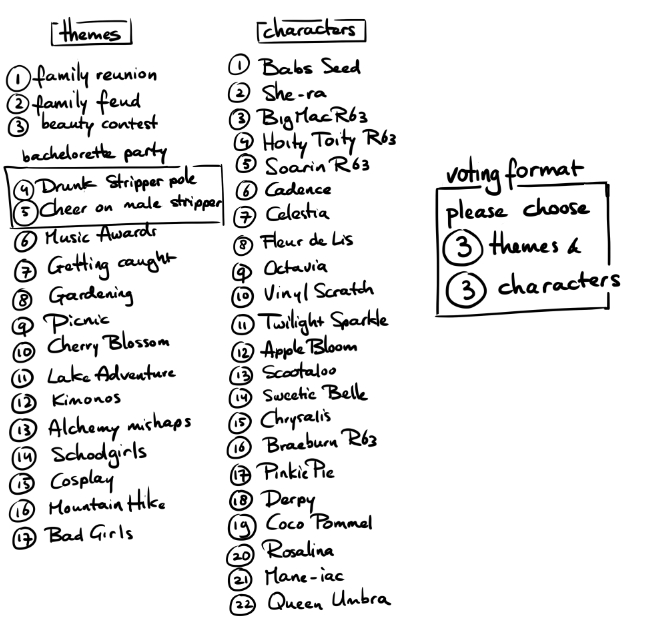 themes
① family reunion
② family feud
③ beauty contest
bachelorette party
④ Drunk Stripper pole
⑤ Cheer on male stripper
⑥ Music Awards
⑦ Getting caught
⑧ Gardening
⑨ Picnic
⑩ Cherry Blossom
⑪ Lake Adventure
⑫ Kimonos
⑬ Alchemy mishaps
⑭ Schoolgirls
⑮ Cosplay
⑯ Mountain Hike
⑰ Bad Girls
characters
① Babs Seed
② She-ra
③ Big Mac R63
④ Hoity Toity R63
⑤ Soarin R63
⑥ Cadence
⑦ Celestia
⑧ Fleur de Lis
⑨ Octavia
⑩ Vinyl Scratch
⑪ Twilight Sparkle
⑫ Apple Bloom
⑬ Scootaloo
⑭ Sweetie Belle
⑮ Chrysalis
⑯ Braeburn R63
⑰ Pinkie Pie
⑱ Derpy
⑲ Coco Pommel
⑳ Rosalina
㉑ Mane-iac
㉒ Queen Umbra
voting format
please choose
③ themes &
③ characters